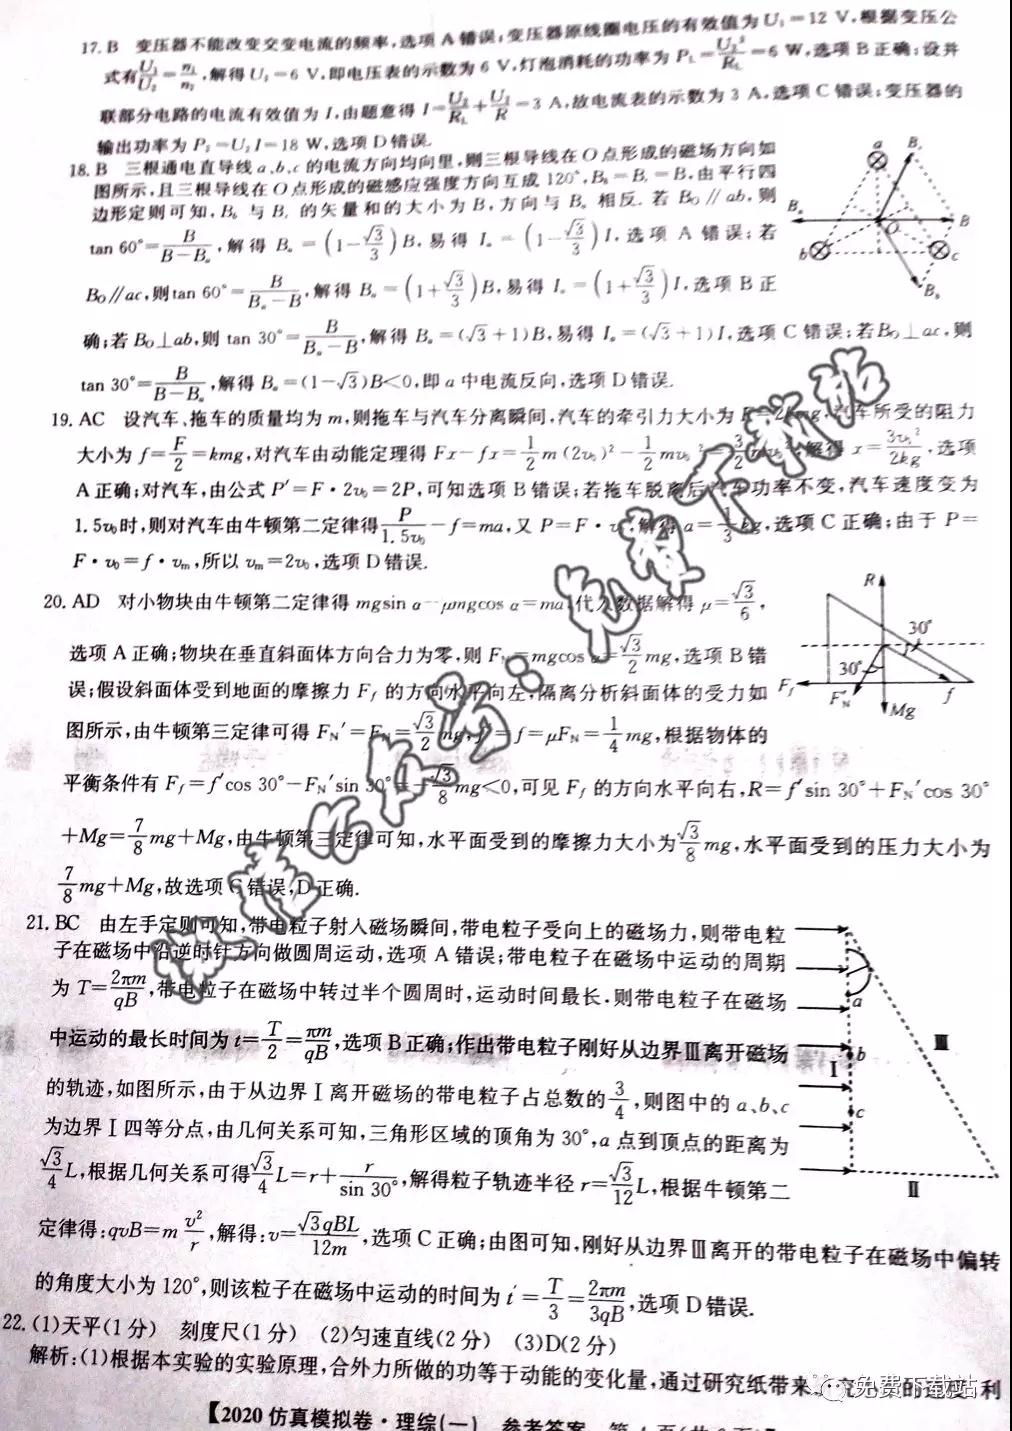 17. B 变压器不能改变交变电流的频率,选项 A 错误;变压器原线圈电压的有效值为 U₁=12 V,根据变压公
式有U₁/U₂=n₁/n₂,解得 U₂=6 V,即电压表的示数为 6 V,灯泡消耗的功率为 P_L=U₂²/R_L=6 W,选项 B 正确;设并
联部分电路的电流有效值为 I,由题意得 I=U₂/R_L+U₂/R=3 A,故电流表的示数为 3 A,选项 C 错误;变压器的
输出功率为 P₂=U₂I=18 W,选项 D 错误.
18. B 三根通电直导线 a、b、c 的电流方向均向里,则三根导线在 O 点形成的磁场方向如
图所示,且三根导线在 O 点形成的磁感应强度方向互成 120°,B_b=B_c=B,由平行四
边形定则可知,B_b 与 B_c 的矢量和的大小为 B,方向与 B_a 相反. 若 B_O∥ab,则
tan 60°=B/(B-B_a),解得 B_a=(1-√3/3)B,易得 I_a=(1-√3/3)I,选项 A 错误;若
B_O∥ac,则 tan 60°=B/(B_a-B),解得 B_a=(1+√3/3)B,易得 I_a=(1+√3/3)I,选项 B 正
确;若 B_O⊥ab,则 tan 30°=B/(B_a-B),解得 B_a=(√3+1)B,易得 I_a=(√3+1)I,选项 C 错误;若B_O⊥ac,则
tan 30°=B/(B-B_a),解得 B_a=(1-√3)B<0,即 a 中电流反向,选项 D 错误.
a
B
B
b
c
O
B_b
19. AC 设汽车、拖车的质量均为 m,则拖车与汽车分离瞬间,汽车的牵引力大小为 F=2kmg,汽车所受的阻力
大小为 f=F/2=kmg,对汽车由动能定理得 Fx-fx=1/2 m(2v₀)²-1/2 mv₀²=3/2 mv₀²,解得 x=3v₀²/2kg,选项
A 正确;对汽车,由公式 P'=F·2v₀=2P,可知选项 B 错误;若拖车脱离后汽车功率不变,汽车速度变为
1.5v₀时,则对汽车由牛顿第二定律得P/1.5v₀-f=ma,又 P=F·v₀,解得 a=1/3 kg,选项 C 正确;由于 P=
F·v₀=f·v_m,所以 v_m=2v₀,选项 D 错误.
20. AD 对小物块由牛顿第二定律得 mgsin α-μmgcos α=ma,代入数据解得 μ=√3/6,
选项 A 正确;物块在垂直斜面体方向合力为零,则 F_N=mgcos α=√3/2 mg,选项 B 错
误;假设斜面体受到地面的摩擦力 F_f 的方向水平向左,隔离分析斜面体的受力如
图所示,由牛顿第三定律可得 F_N'=F_N=√3/2 mg,f'=f=μF_N=1/4 mg,根据物体的
平衡条件有 F_f=f'cos 30°-F_N'sin 30°=-√3/8 mg<0,可见 F_f 的方向水平向右,R=f'sin 30°+F_N'cos 30°
+Mg=7/8 mg+Mg,由牛顿第三定律可知,水平面受到的摩擦力大小为√3/8 mg,水平面受到的压力大小为
7/8 mg+Mg,故选项 C 错误,D 正确.
R
30°
30°
F_f
F_N'
Mg
f
21. BC 由左手定则可知,带电粒子射入磁场瞬间,带电粒子受向上的磁场力,则带电粒
子在磁场中沿逆时针方向做圆周运动,选项 A 错误;带电粒子在磁场中运动的周期
为 T=2πm/qB,带电粒子在磁场中转过半个圆周时,运动时间最长.则带电粒子在磁场
中运动的最长时间为 t=T/2=πm/qB,选项 B 正确;作出带电粒子刚好从边界Ⅲ离开磁场
的轨迹,如图所示,由于从边界Ⅰ离开磁场的带电粒子占总数的 3/4,则图中的 a、b、c
为边界Ⅰ四等分点,由几何关系可知,三角形区域的顶角为 30°,a 点到顶点的距离为
√3/4 L,根据几何关系可得√3/4 L=r+r/sin 30°,解得粒子轨迹半径 r=√3/12 L,根据牛顿第二
定律得:qvB=m v²/r,解得:v=√3qBL/12m,选项 C 正确;由图可知,刚好从边界Ⅲ离开的带电粒子在磁场中偏转
的角度大小为 120°,则该粒子在磁场中运动的时间为 t'=T/3=2πm/3qB,选项 D 错误.
a
b
Ⅰ
Ⅲ
c
Ⅱ
22. (1)天平(1 分) 刻度尺(1 分) (2)匀速直线(2 分) (3)D(2 分)
解析:(1)根据本实验的实验原理,合外力所做的功等于动能的变化量,通过研究纸带来 的速度 利
【2020 仿真模拟卷·理综(一) 参考答案
微信公众号:免费下载站
免费下载站